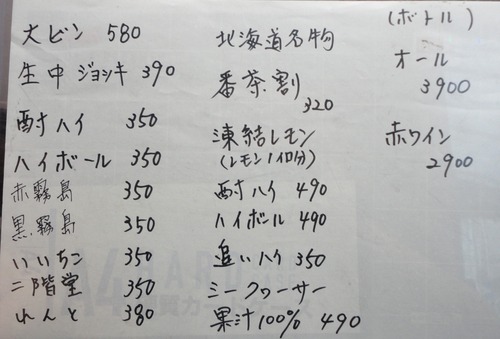 大ビン 580
生中ジョッキ 390
酎ハイ 350
ハイボール 350
赤霧島 350
黒霧島 350
いいちこ 350
二階堂 350
れんと 380
北海道名物
番茶割
320
凍結レモン
(レモン1ヶ分)
酎ハイ 490
ハイボール 490
追いハイ 350
シークワーサー
果汁100% 490
(ボトル)
オール
3900
赤ワイン
2900